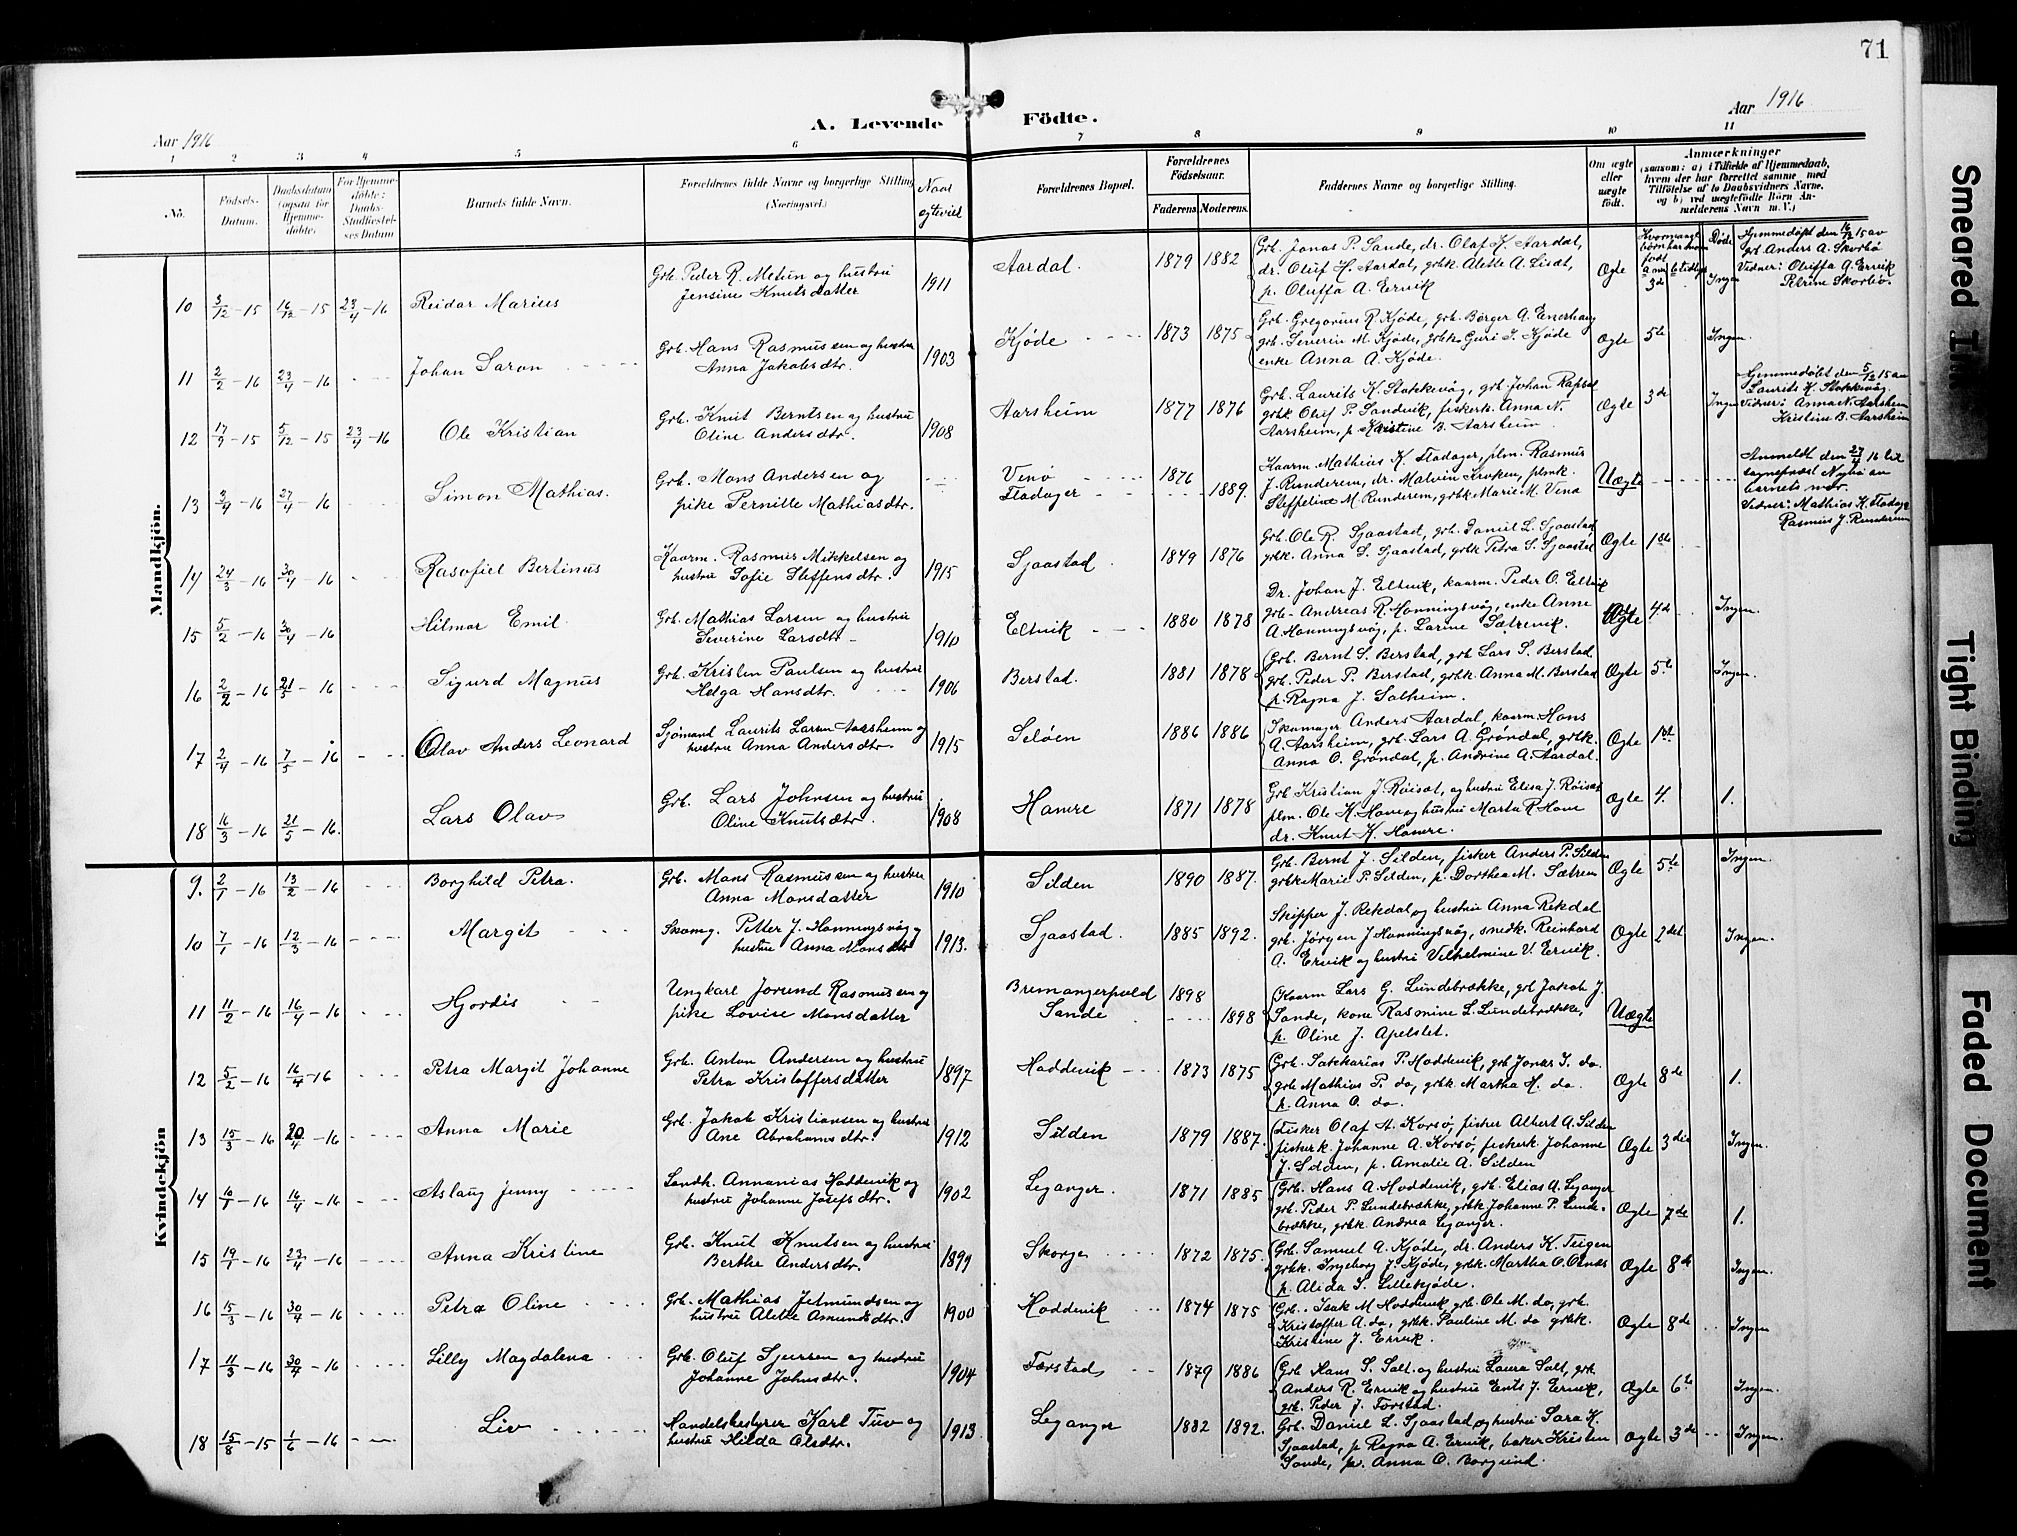 71
Aar 1916
A. Levende Födte.
Aar 1916
1 2 3 4 5 6 7 8 9 10 11
No. Födsels-Datum. Daabsdatum (ogsaa for Hjemme-döbte. For Hjemme-döbte: Daabs-Stadfæstel-ses Datum Barnets fulde Navn. Forældrenes fulde Navne og borgerlige Stilling (Næringsvei.) Naar egteviet Forældrenes Bopæl. Forældrenes Födselsaar. Faderens Moderens. Faddernes Navne og borgerlige Stilling. Om ægte eller uægte født. Anmærkninger
(saasom: a) i Tilfælde af Hjemmedaab, hvem der har forrettet samme, med Tilföielse af to Daabsvidners Navne, og b) ved uægtefödte Börn An-melderens Navn m. V.)
Mandkjön.
10 3/12 - 15 16/12 - 15 23/4 - 16 Reidar Marius Grb. Peder R. Metun og hustru Jensine Knutsdatter 1911 Aardal. 1879 1882 Grb. Jonas P. Sande, dr. Olaf K. Aardal, dr. Oluf H. Aardal, grbk. Alette A. Liset, p. Oluffa A. Ervik Ægte 3de Ingen Hjemmedøpt den 16/12 15 av grb. Anders A. Skorbø Vidner: Oluffa A. Ervik Petrine Skorbø.
11 2/2 - 16 23/4 - 16 Johan Saron Grb. Hans Rasmussen og hustru Anna Jakobsdtr. 1903 Kjøde 1873 1875 Grb. Gregorius R. Kjøde, grb. Børger A. Enerhaug grb. Severin M. Kjøde, grbk. Guri I. Kjøde enke Anna A. Kjøde. Ægte 5te Ingen.
12 17/9 - 15 5/12 - 15 23/4 - 16 Ole Kristian Grb. Knut Berntsen og hustru Oline Andersdtr. 1908 Aarsheim 1877 1876 Grb. Laurits K. Stokkevåg, grb. Johan Rapsal grbk. Oluf P. Sandvik, fiskerk. Anna N. Aarsheim, p. Kristine B. Aarsheim Ægte 3de Ingen Hjemmedøbt den 5/12 15 av Laurits K. Stokkevåg. Vidner: Anna N. Aarsheim Kristine B. Aarsheim
13 3/4 - 16 27/4 - 16 Simon Mathias. Grb. Mons Andersen og pike Pernille Mathiasdtr. Venø Fladager 1876 1889. Kaarm. Mathias K. Fladager, plm. Rasmus J. Runderem, dr. Malvin Kroken, plmk. Steffeline M. Runderem, grbk Marie M. Venø Uægte Anmeldt den 27/4 16 til sogneprest Nybø av barnets mor. Vidner: Mathias K. Fladager Rasmus J. Runderem
14 24/3 - 16 30/4 - 16 Rasofiel Bertinus Kaarm. Rasmus Mikkelsen og hustru Sofie Steffensdtr. 1915 Sjaastad. 1849 1876 Grb. Ole R. Sjaastad, grb. Daniel L. Sjaastad, grbk. Anna S. Sjaastad, grbk Petra S. Sjaastad Ægte 1ste
15 5/2 - 16 30/4 - 16 Hilmar Emil. Grb. Mathias Larsen og hustru Severine Larsdtr. 1910 Eltvik 1880 1878 Dr. Johan J. Eltvik, kaarm. Peder O. Eltvik grb. Andreas R. Honningsvåg, enke Anne A. Honningsvåg, p. Larine Sætrevik. Ægte 4de Ingen.
16 2/2 - 16 21/5 - 16 Sigurd Magnus Grb. Kristen Paulsen og hustru Helga Hansdtr. 1906 Berstad. 1881 1878 Grb. Bernt S. Berstad, grb Lars S. Berstad grb. Peder P. Berstad, grbk. Anna M. Berstad p. Ragna J. Salheim. Ægte 5te Ingen.
17 2/4 - 16 7/5 - 16 Olav Anders Leonard Sjømand Laurits Larsen Aarsheim og hustru Anna Andersdtr. 1915 Seløen 1886 1886 Skomager Anders Aardal, kaarm. Hans A. Aarsheim, grb. Lars A. Grøndal, grbk. Anna O. Grøndal, p. Andrine A. Aardal. Ægte 1ste
18 16/3 - 16 21/5 - 16. Lars Olav Grb. Lars Johnsen og hustru Oline Knutsdtr. 1908 Hamre 1871 1878 Grb Kristian J. Røiset, og hustru Elisa J. Røiset plm. Ole H. Hove og hustru Marta R Hove dr. Knut K. Hamre. Ægte 4. 1.
Kvindekjön
9. 2/1 - 16 13/2 - 16 Borghild Petra. Grb. Mons Rasmussen og hustru Anna Monsdatter 1910 Silden 1890 1887. Grb. Bernt J. Silden, fisker Anders P. Silden grbk Marie P. Silden, p. Dorthea M. Sætren Ægte 5te Ingen.
10 7/1 - 16 12/3 - 16 Margit Skomg. Petter J. Honningsvåg og hustru Anna Monsdtr 1913. Sjaastad. 1885 1892. Skipper J. Rekdal og hustru Anna Rekdal grb. Jørgen J. Honningsvåg, snedk. Reinhard A. Ervik og hustru Vilhelmine V. Ervik. Ægte 2det Ingen.
11 11/2 - 16 16/4 - 16 Hjordis Ungkarl Jorund Rasmussen og pike Lovise Monsdatter Bremangerpold Sande 1898 1898 Kaarm Lars G. Lundebrække, grb Jakob J. Sande, kone Rasmine L. Lundebrække, p. Oline J. Apelset. Uægte
12 5/2 - 16 16/4 - 16 Petra Margit Johanne Grb. Anton Andersen og hustru Petra Kristoffersdatter 1897 Hoddevik 1873 1875 Grb. Sakekarias P. Hoddevik, grb Jonas I. do. grb Mathias P. do, grbk. Martha H. do. p. Anna O. do. Ægte 8de 1.
13 15/3 - 16 20/4 - 16 Anna Marie Grb. Jakob Kristiansen og hustru Ane Abrahamsdtr. 1912 Silden 1879 1887. Fisker Olaf A. Korsø, fisher Albert A. Silden fiskerk. Johanne A. Korsø, fiskerk. Johanne J. Silden, p. Amalie A. Silden Ægte 3die Ingen.
14 10/1 - 16 16/4 - 16 Aslaug Jenny Landh. Annanias Hoddevik og hustru Johanne Josefsdtr. 1902 Leganger. 1871 1885 Grb. Hans A. Hoddevik, grb. Elias A. Leganger grb. Peder P. Lundebrække, grbk Johanne P. Lunde-brække, grbk. Andrea Leganger. Ægte 7de 1.
15 19/1 - 16 23/4 - 16 Anna Kristine Grb. Knut Knutsen og hustru Berthe Andersdtr. 1899 Skorge 1872 1875. Grb. Samuel A. Kjøde, dr. Anders K. Teigen grbk. Ingeborg J. Kjøde, grbk. Martha O. Osnes p. Alida S. Lillekjøde. Ægte 8de Ingen.
16 15/3 - 16 30/4 - 16 Petra Oline Grb. Mathias Jetmundsen og hustru Alette Amundsdtr. 1900 Hoddevik 1874 1875 Grb. Isak M Hoddevik, grb. Ole M. do, grb. Kristoffer A. do, grbk. Pauline M. do grbk. Kristine J. Ervik. Ægte 8de Ingen
17 11/3 - 16 30/4 - 16 Lilly Magdalena Grb. Oluf Sjursen og hustru Johanne Johnsdtr. 1904 Førstad 1879 1886 Grb Hans S. Salt og hustru Laura Salt, grb. Anders R. Ervik og hustru Ents J. Ervik, grb. Peder J. Førstad. Ægte 6te Ingen.
18 15/8 - 15 1/6 - 16 Liv Handelsbestyrer Karl Tuv og hustru Hilda Olsdtr. 1913. Leganger 1882 1892. Grb. Daniel L. Sjaastad og hustru Sara K. Sjaastad, p Ragna A. Ervik, baker Kristen Sande, p. Anna O. Borgund. Ægte 3de Ingen.
Smeared Ink
Tight Binding
Faded Document